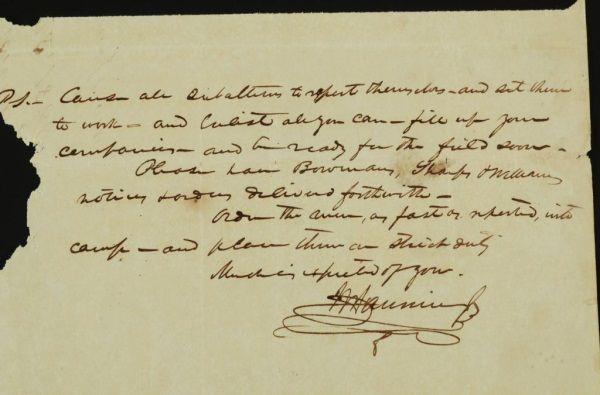 P.S. – Cause all subalterns to report themselves – and set them
to work – and Enlist all you can – fill up your
companies – and be ready for the field soon –
Please have Bowmans, Sharps & Williams
notices & orders delivered forthwith –
Order the men, as fast as reported, into
camp – and place them on strict duty
Much is expected of you.